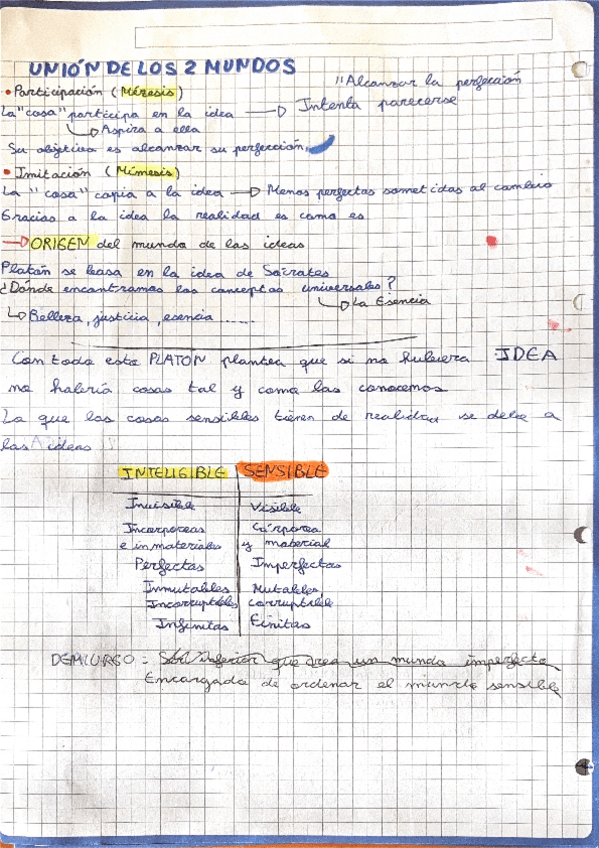 UNIÓN DE LOS 2 MUNDOS
"Alcanzar la perfección
• Participación (Mézesis)
La "cosa" participa en la idea → Intenta parecerse
↳ Aspira a ella
Su objetivo es alcanzar su perfección.
• Imitación (Mímesis)
La "cosa" copia a la idea → Menos perfectas sometidas al cambio
Gracias a la idea la realidad es como es
→ ORIGEN del mundo de las ideas
Platón se basa en la idea de Sócrates
¿Dónde encontramos los conceptos universales?
↳ La Esencia
↳ Belleza, justicia, esencia ......
Con todo esto PLATÓN plantea que si no hubiera IDEA
no habría cosas tal y como las conocemos
Lo que las cosas sensibles tienen de realidad se debe a
las ideas
INTELIGIBLE | SENSIBLE
Invisible Visible
Incorporeas Córporea
e inmateriales y material
Perfectas Imperfectas
Inmutables Mutables
Incorruptibles corruptible
Infinitas Finitas
DEMIURGO = Ser inferior que crea un mundo imperfecto
Encargado de ordenar el mundo sensible